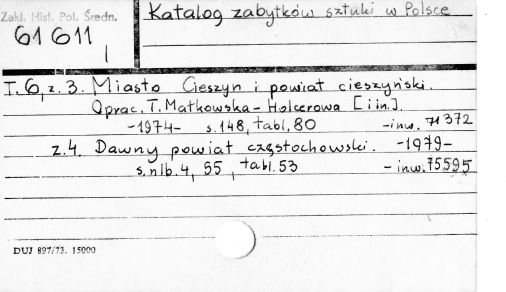 Zakł. Hist. Pol. Średn.
61 611
I
Katalog zabytków sztuki w Polsce
T. 6, z. 3. Miasto Cieszyn i powiat cieszyński.
Oprac. T. Małkowska-Holcerowa [i in.].
-1974- s. 148, tabl. 80 -inw. 71372
z. 4. Dawny powiat częstochowski. -1979-
s. nlb. 4, 55, tabl. 53 - inw. 75595
DUJ 897/73. 15000